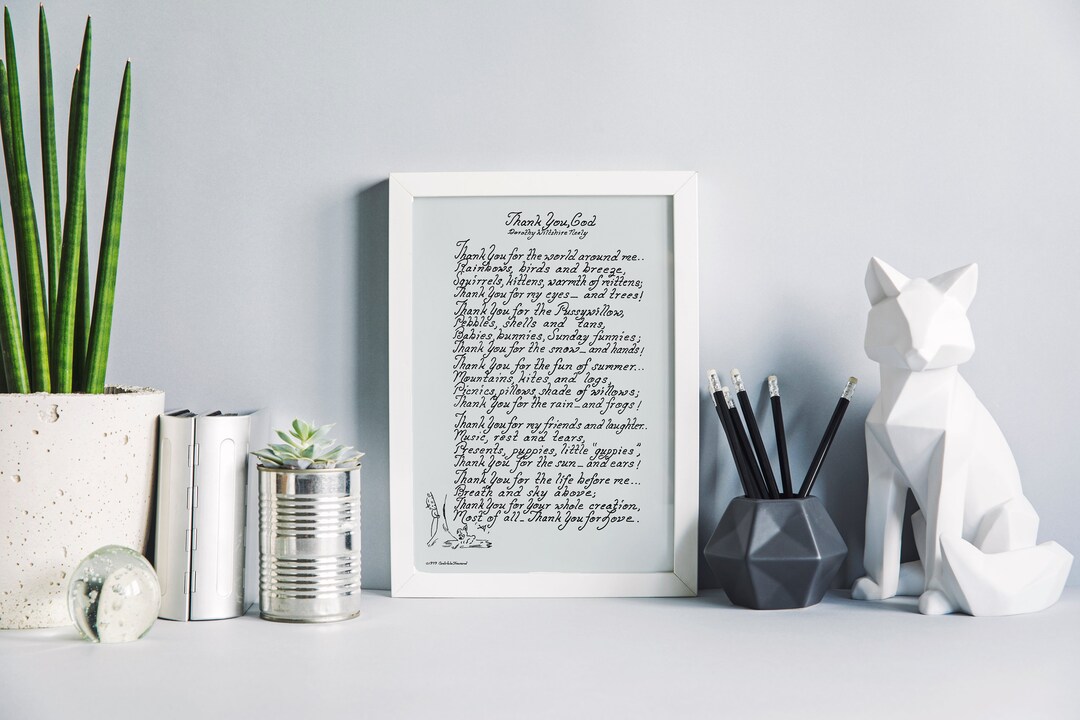 Thank You, God
Dorothy Wiltshire Neely
Thank You for the world around me..
Rainbows, birds and breeze,
Squirrels, kittens, warmth of mittens;
Thank You for my eyes_ and trees!
Thank You for the Pussywillow,
Pebbles, shells and tans,
Babies, bunnies, Sunday funnies;
Thank You for the snow_ and hands!
Thank You for the fun of summer...
Mountains, kites, and logs,
Picnics, pillows, shade of willows;
Thank You for the rain_ and frogs!
Thank You for my friends and laughter..
Music, rest and tears,
Presents, puppies, little "guppies",
Thank You for the sun_ and ears!
Thank You for the life before me...
Breath and sky above;
Thank You for Your whole creation,
Most of all_ Thank You for Love..